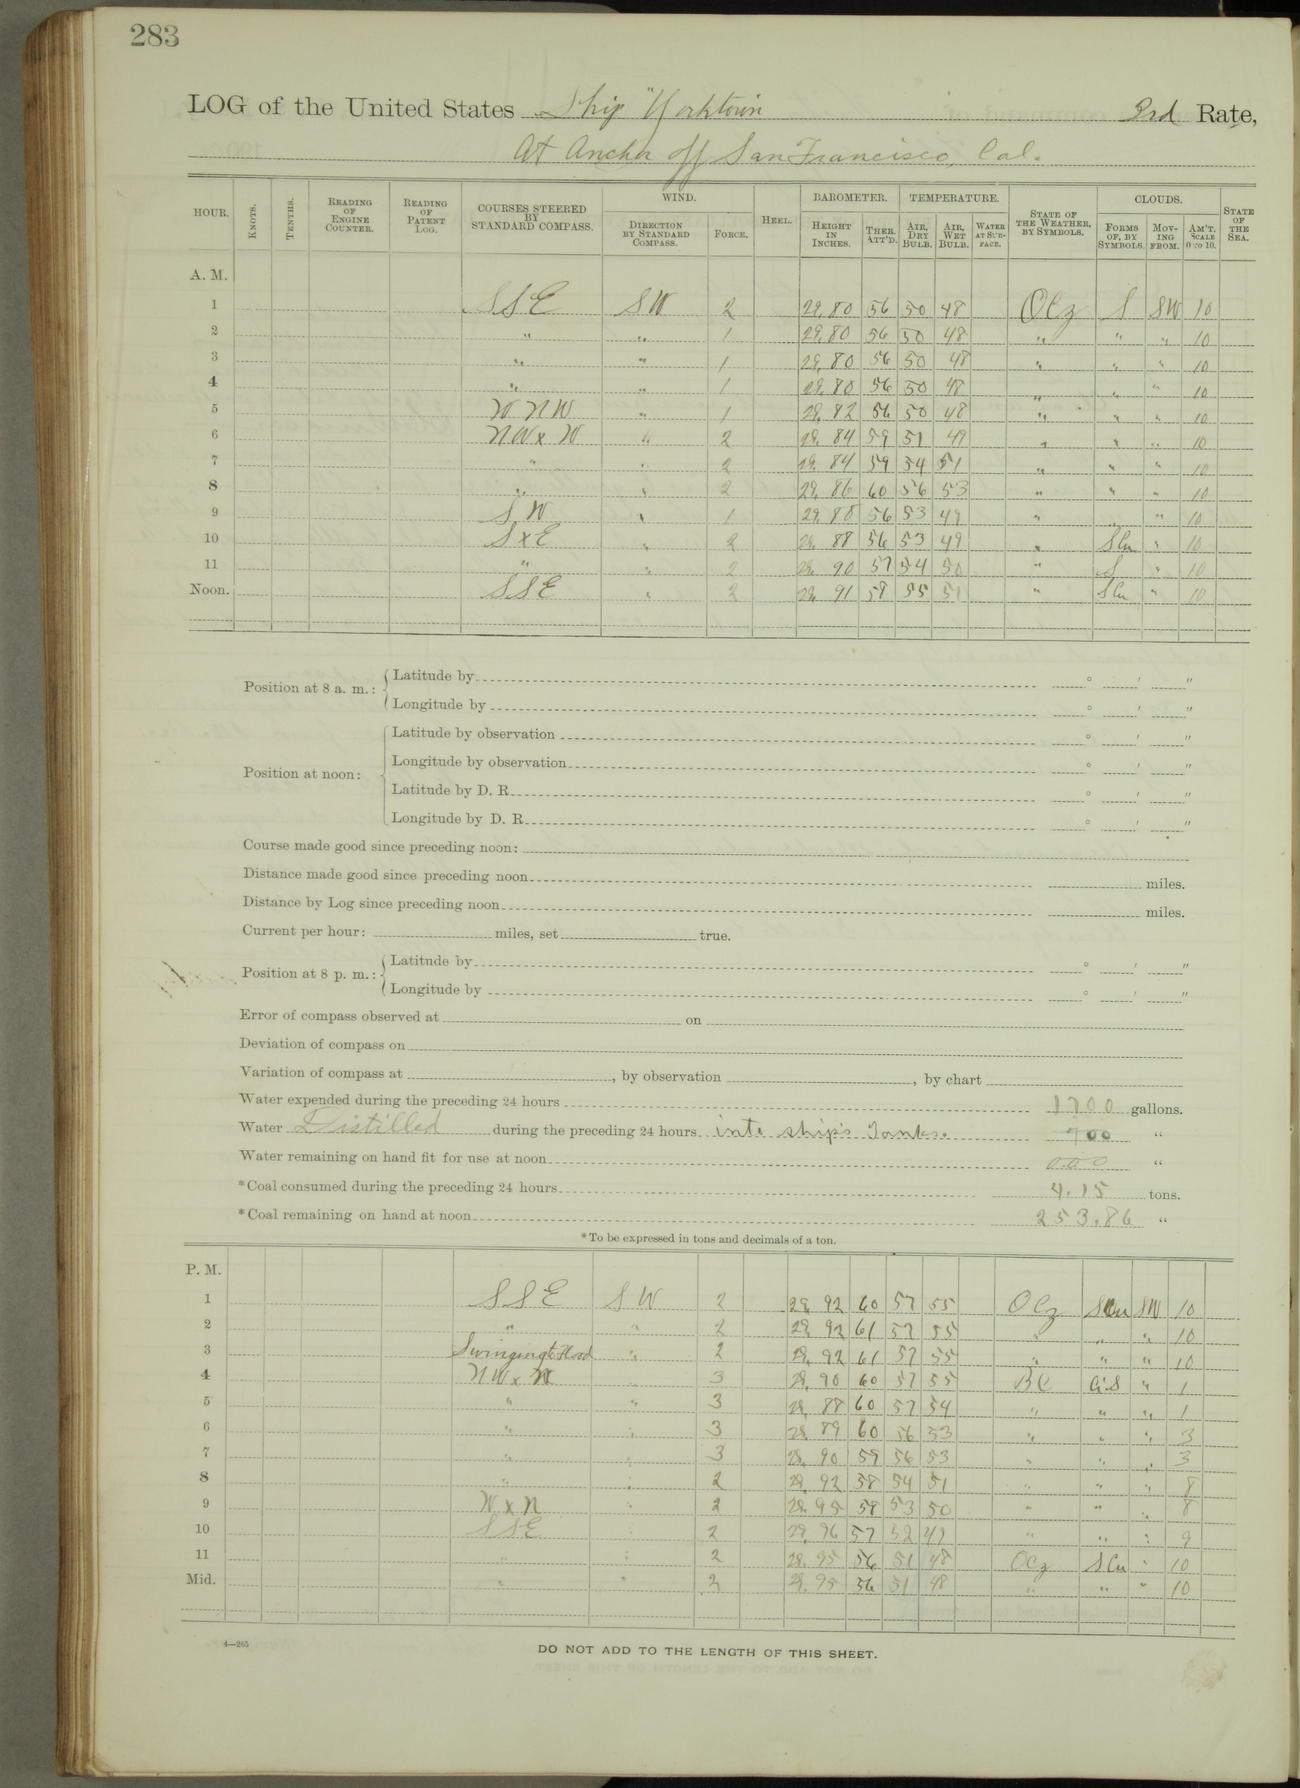 283
LOG of the United States Ship "Yorktown 3rd Rate,
At Anchor off San Francisco, Cal.
HOUR. KNOTS. TENTHS. READING OF ENGINE COUNTER. READING OF PATENT LOG. COURSES STEERED BY STANDARD COMPASS. WIND. DIRECTION BY STANDARD COMPASS. FORCE. HEEL. BAROMETER. HEIGHT IN INCHES. THER. ATT'D. TEMPERATURE. AIR, DRY BULB. AIR, WET BULB. WATER AT SURFACE. STATE OF THE WEATHER, BY SYMBOLS. CLOUDS. FORMS OF, BY SYMBOLS. MOVING FROM. AM'T. SCALE 0 TO 10. STATE OF THE SEA.
A. M.
1 SSE SW 2 29.80 56 50 48 OCZ S SW 10
2 " " 1 29.80 56 50 48 " " " 10
3 " " 1 29.80 56 50 48 " " " 10
4 " " 1 29.80 56 50 48 " " " 10
5 WNW " 1 29.82 56 50 48 " " " 10
6 NWxW " 2 29.84 59 51 49 " " " 10
7 " " 2 29.84 59 54 51 " " " 10
8 " " 2 29.86 60 56 53 " " " 10
9 SW " 1 29.88 56 53 49 " " " 10
10 SxE " 2 29.88 56 53 49 " SCu " 10
11 " " 2 29.90 57 54 50 " S " 10
Noon. SSE " 2 29.91 58 55 51 " SCu " 10
Position at 8 a. m.: Latitude by ° ′ ″
Longitude by ° ′ ″
Position at noon: Latitude by observation ° ′ ″
Longitude by observation ° ′ ″
Latitude by D. R. ° ′ ″
Longitude by D. R. ° ′ ″
Course made good since preceding noon:
Distance made good since preceding noon miles.
Distance by Log since preceding noon miles.
Current per hour: miles, set true.
Position at 8 p. m.: Latitude by ° ′ ″
Longitude by ° ′ ″
Error of compass observed at on
Deviation of compass on
Variation of compass at , by observation , by chart
Water expended during the preceding 24 hours 1700 gallons.
Water Distilled during the preceding 24 hours into ship's Tanks. 700 "
Water remaining on hand fit for use at noon 000 "
*Coal consumed during the preceding 24 hours 4.15 tons.
*Coal remaining on hand at noon 253.86 "
*To be expressed in tons and decimals of a ton.
P. M.
1 SSE SW 2 29.92 60 57 55 OCZ SCu SW 10
2 " " 2 29.92 61 57 55 " " " 10
3 Swinging to Flood " 2 29.92 61 57 55 " " " 10
4 NWxW " 3 29.90 60 57 55 BC CiS " 1
5 " " 3 29.88 60 57 54 " " " 1
6 " " 3 29.89 60 56 53 " " " 3
7 " " 3 29.90 59 56 53 " " " 3
8 " " 2 29.92 58 54 51 " " " 8
9 WxN " 2 29.95 58 53 50 " " " 8
10 SSE " 2 29.96 57 52 49 " " " 9
11 " " 2 29.95 56 51 48 OCZ SCu " 10
Mid. " " 2 29.95 56 51 48 " " " 10
4—265
DO NOT ADD TO THE LENGTH OF THIS SHEET.